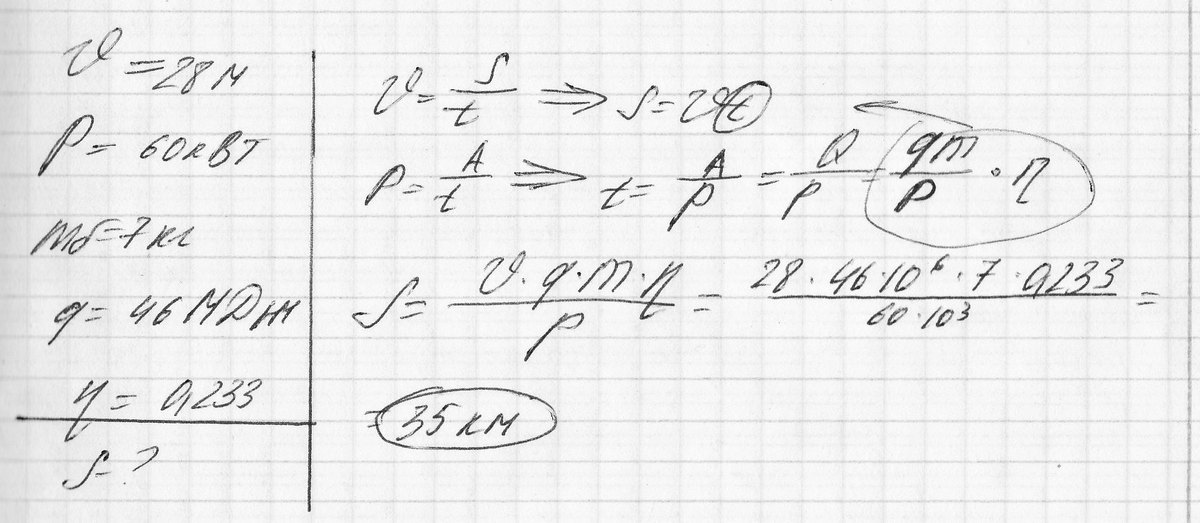 υ = 28 м
P = 60 кВт
mб = 7 кг
q = 46 МДж
η = 0,233
S - ?
υ = S/t ⇒ S = υt
P = A/t ⇒ t = A/P = Q/P = qm/P · η
S = υ · q · m · η / P = 28 · 46 · 10⁶ · 7 · 0,233 / 60 · 10³ =
= 35 км